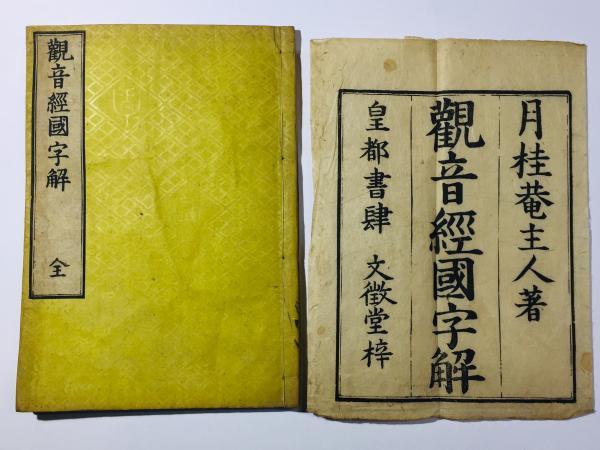 觀音經國字解 全
月桂菴主人著
觀音經國字解
皇都書肆 文徵堂梓